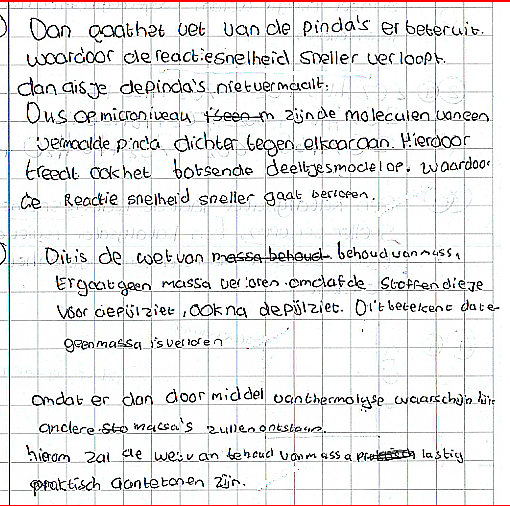 Dan gaat het vet van de pinda's er beter uit.
waardoor de reactiesnelheid sneller verloopt.
dan als je de pinda's niet vermaalt.
Dus op microniveau zijn de moleculen van een
vermaalde pinda dichter tegen elkaar aan. Hierdoor
treedt ook het botsende deeltjesmodel op. waardoor
de Reactie snelheid sneller gaat verlopen.
Dit is de wet van massa behoud behoud van massa,
Er gaat geen massa verloren omdat de stoffen die je
voor de pijl ziet, ook na de pijl ziet. Dit betekent dat er
geen massa is verloren
omdat er dan door middel van thermolyse waarschijnlijk
andere sto massa's zullen ontstaan.
hierom zal de wet van behoud van massa lastig
praktisch aantetonen zijn.